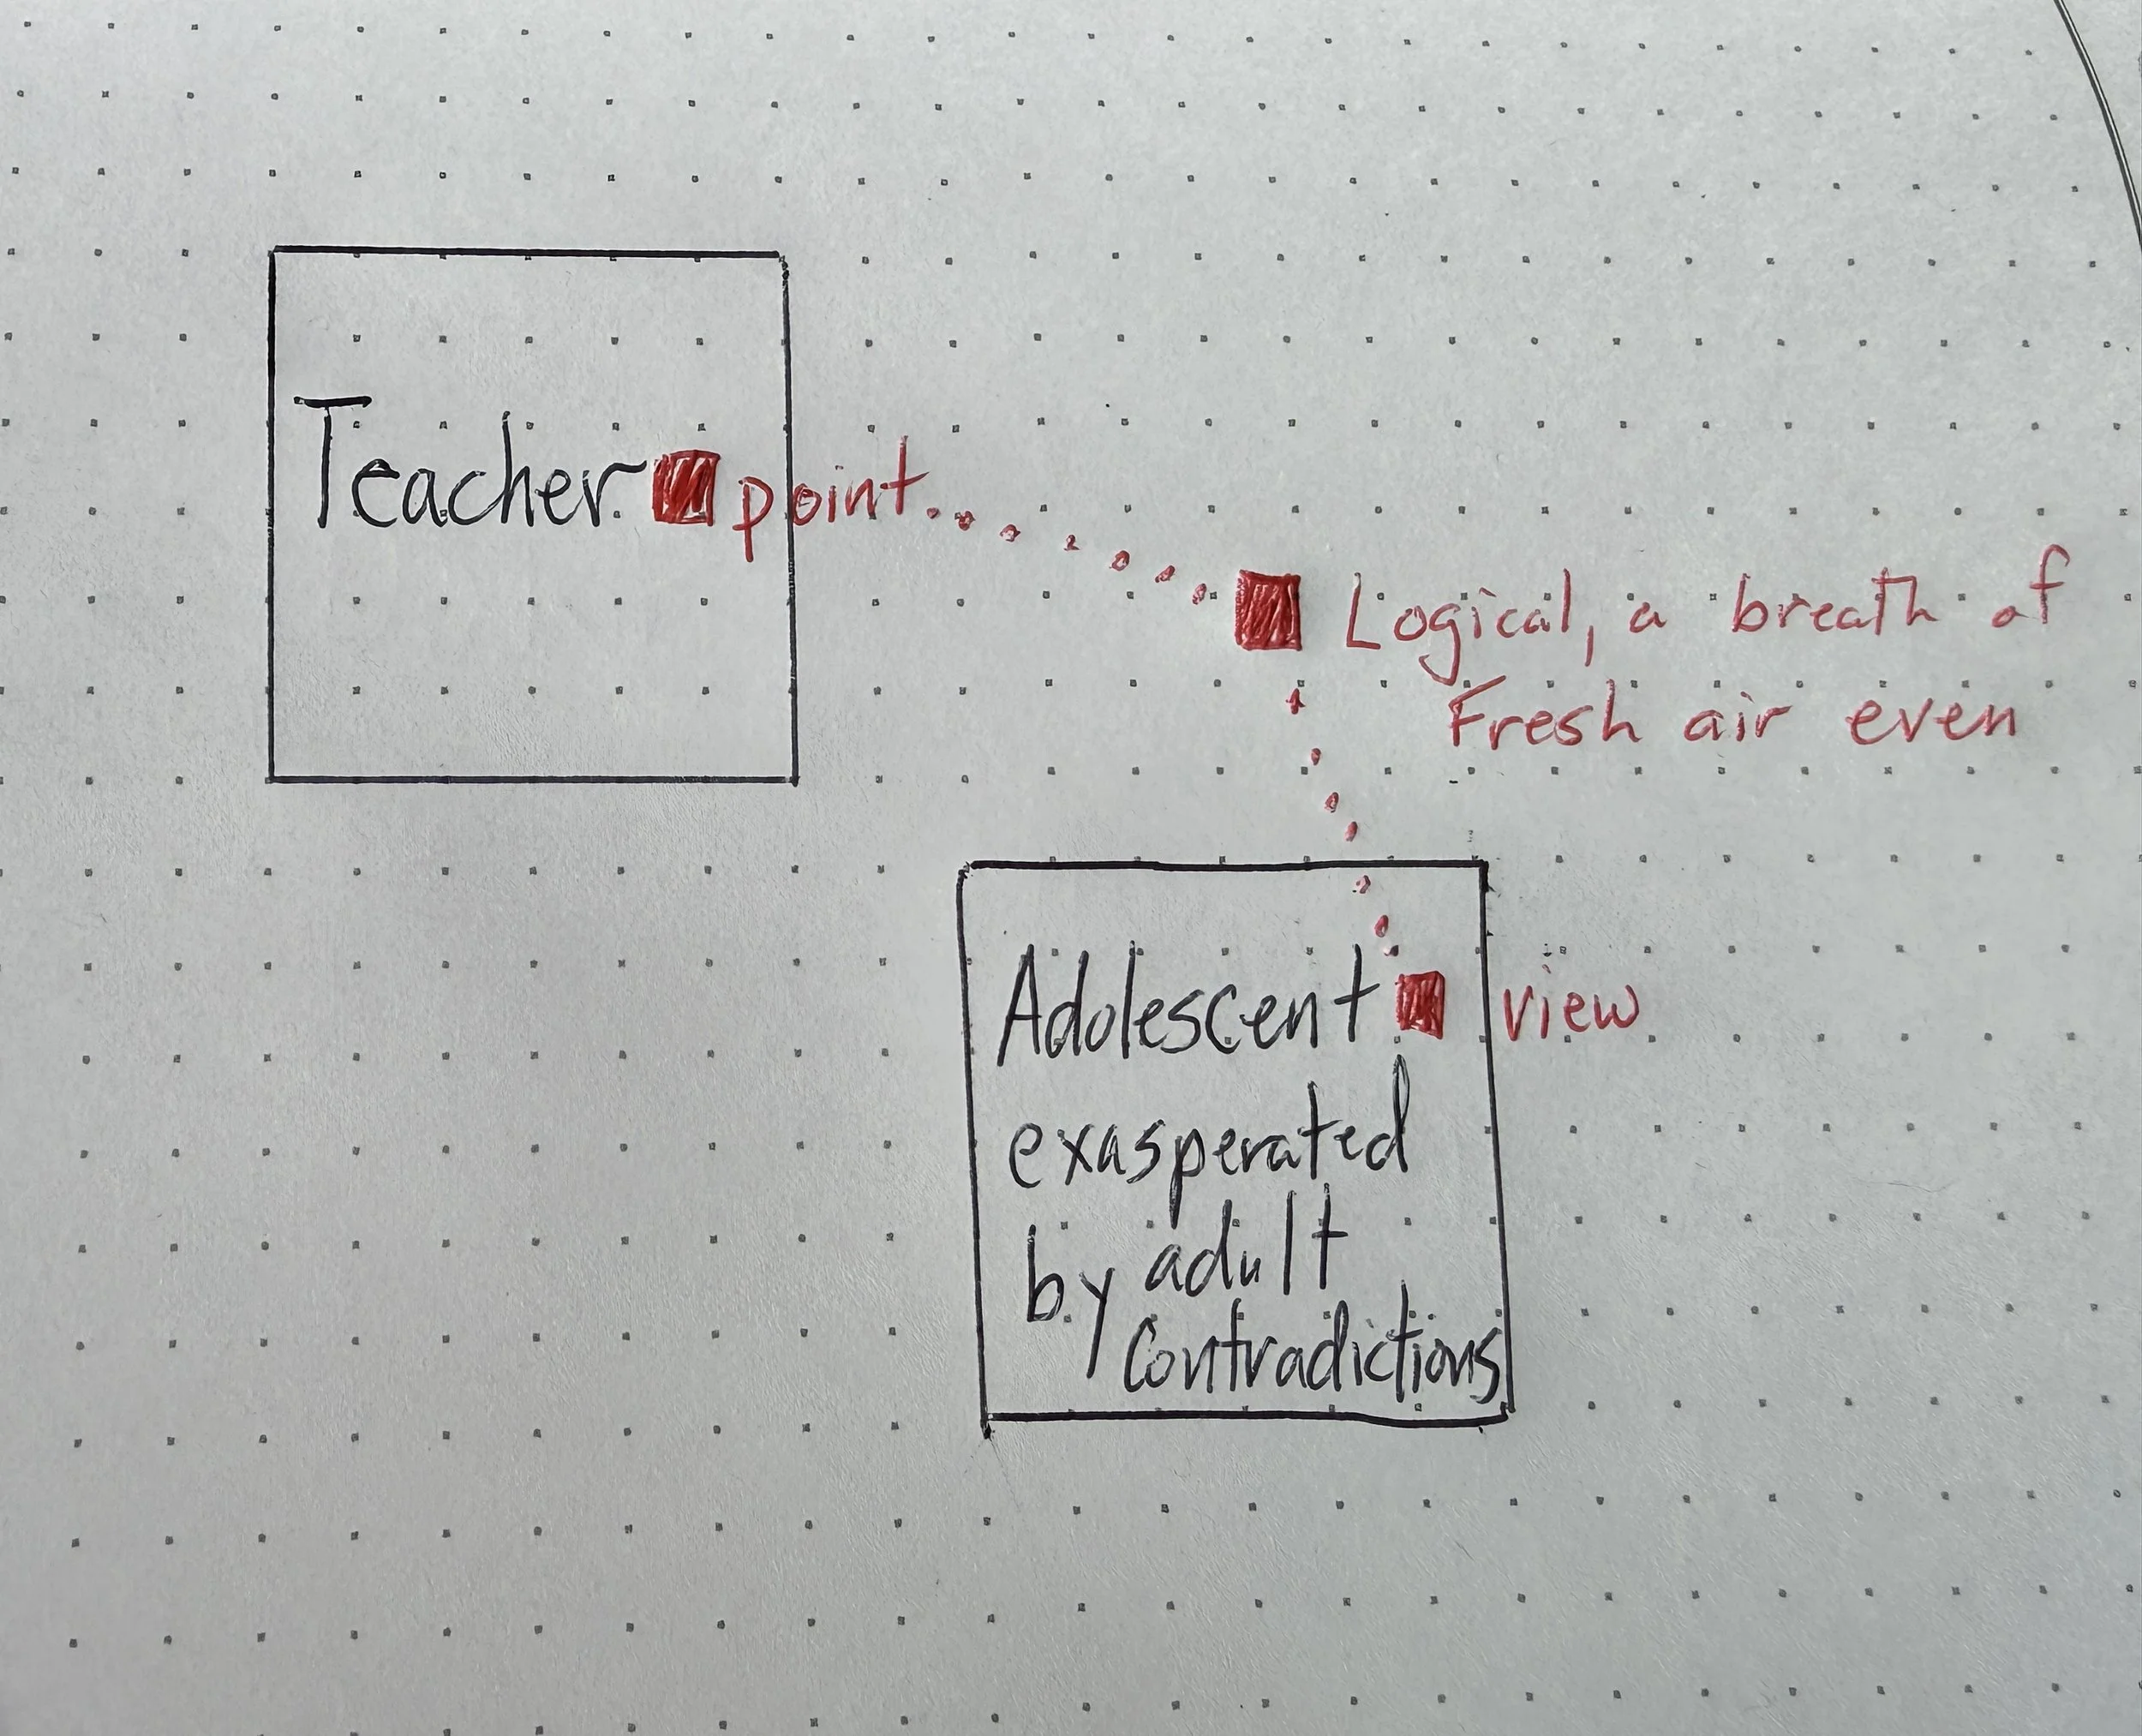 Teacher point...
Logical, a breath of
Fresh air even
Adolescent view
exasperated
by adult
Contradictions